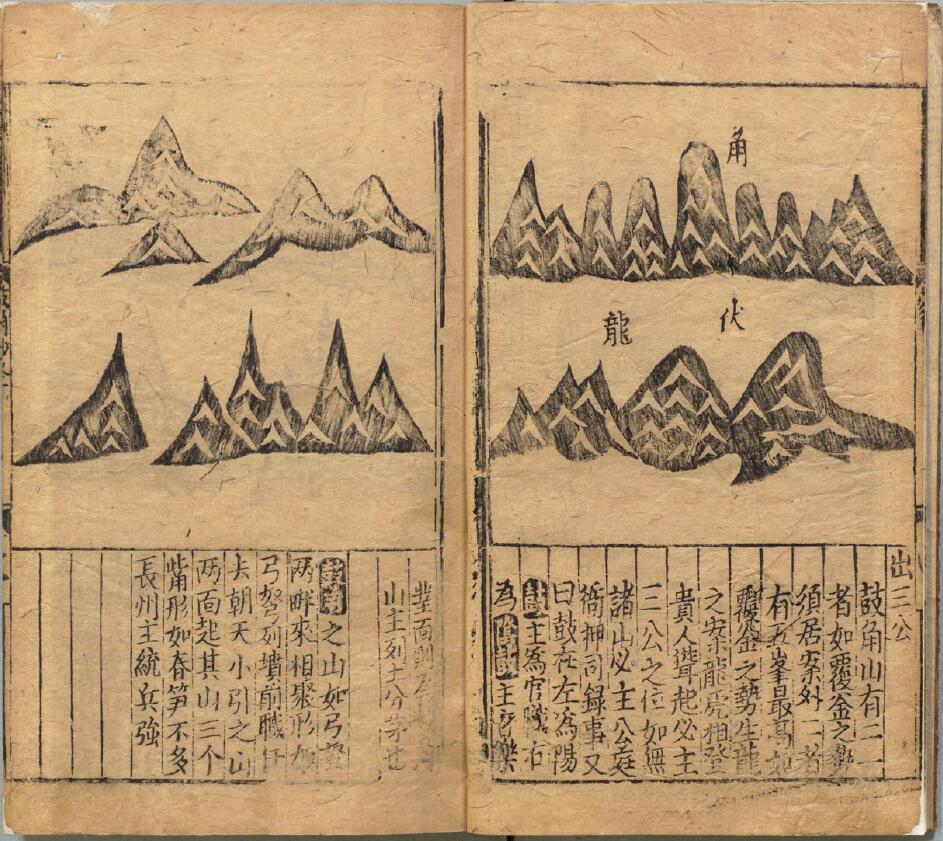 角
伏
龍
出三公
鼓角山有二一
者如覆釜之勢
須居案外二者
有五峯最高如
覆釜之勢生龍
之案龍虎相登
貴人聳起必主
三公之位如無
諸山必主公庭
衙押司録事又
曰鼓在左為陽
主為官職右
為主
山主列土分茅也
之山如弓弩
两畔來相聚形如
弓弩列墳前職任
朝天小引之山
两面起其山三个
觜形如春笋不多
長州主統兵強